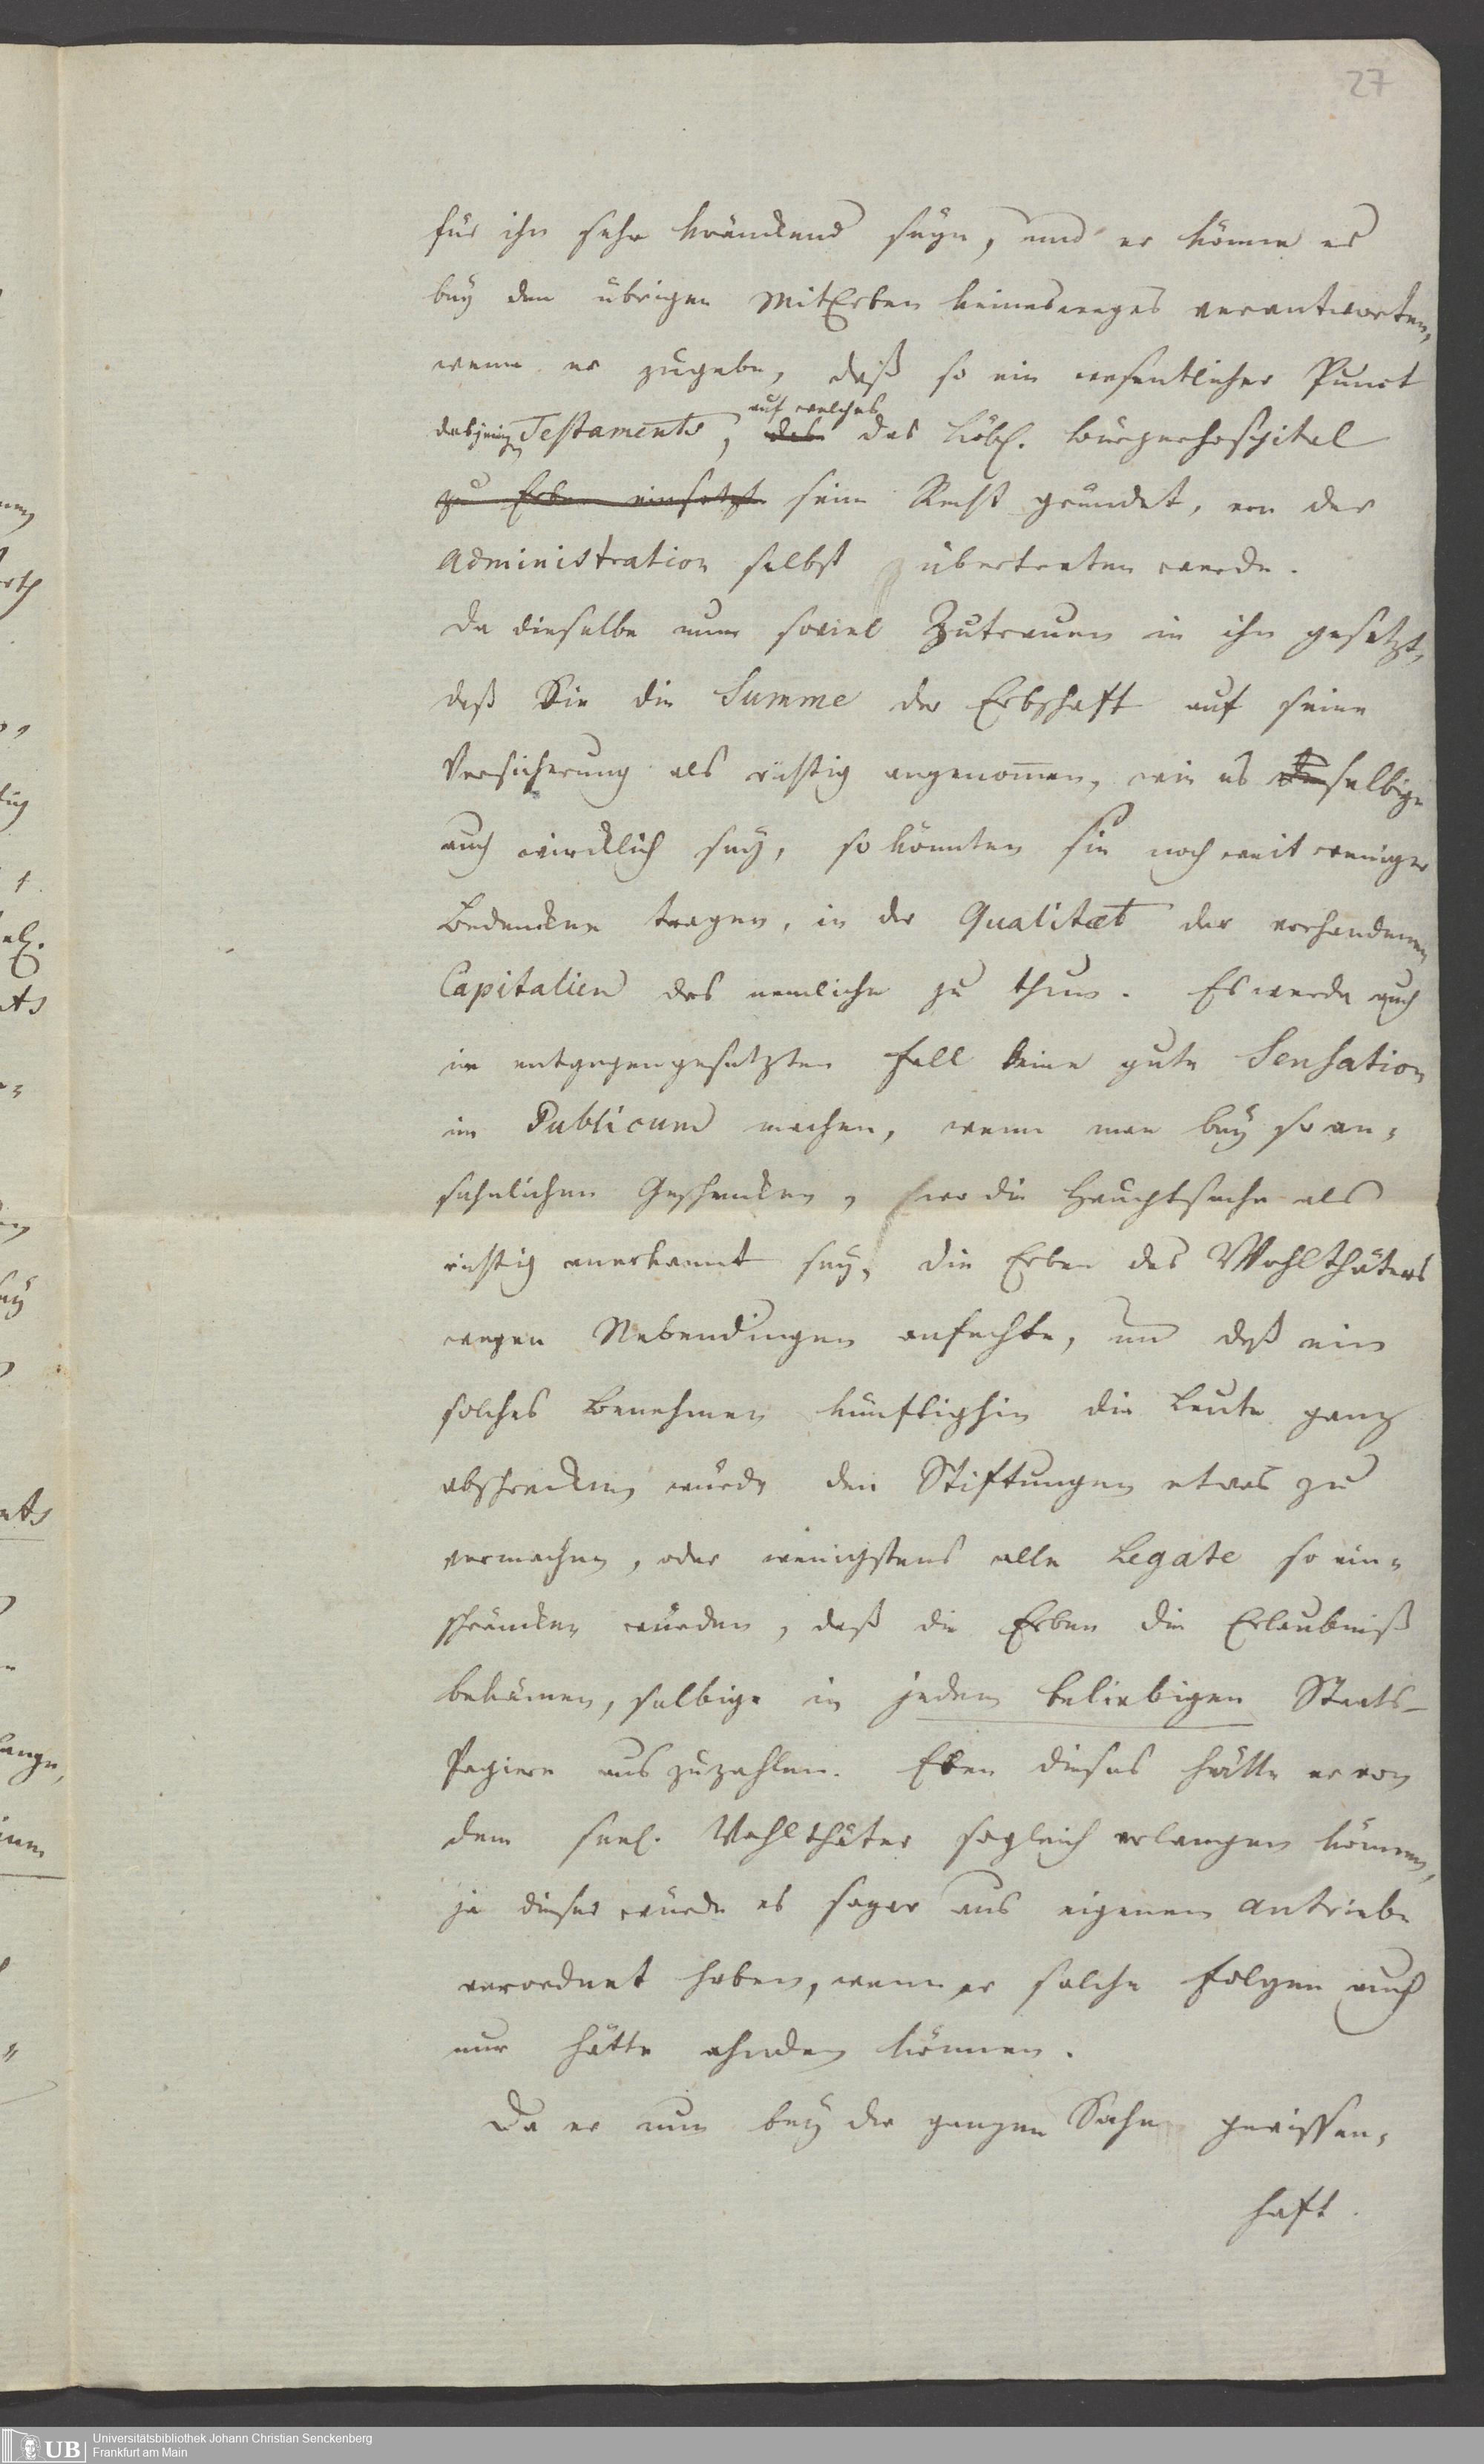 27
für ihn sehr kränckend seyn, und er könne es
bey den übrigen MitErben keinesweges verantworten,
wenn er zugebe, daß so ein wesentlicher Punct
desjenigen Testaments, auf welches das das Löbl. Bürgerhospital
zu Erben einsetzt sein Recht gründet, von der
Administration selbst übertreten werde.
Da dieselbe nun soviel Zutrauen in ihn gesetzt,
daß Sie die Summe der Erbschaft auf seine
Versicherung als richtig angenom̄en, wie es selbige
auch wircklich sey, so könnten sie noch weit weniger
Bedencken tragen, in der Qualitæt der vorhandenen
Capitalien das nemliche zu thun. Es werde auch
im entgegengesetzten Fall keine gute Sensation
im Publicum machen, wenn man bey so an-
sehnlichen Geschencken, wo die Hauptsache als
richtig anerkannt sey, die Erben des Wohlthäters
wegen Nebendingen anfechte, und daß ein
solches Benehmen künftighin die Leute ganz
abschrecken würde den Stiftungen etwas zu
vermachen, oder wenigstens alle Legate so ein-
schräncken würden, daß die Erben die Erlaubniß
bekämen, selbige in jedem beliebigen Staats-
Papiere auszuzahlen. Eben dieses hätte er von
dem seel. Wohlthäter sogleich erlangen können,
ja dieser würde es sogar aus eigenem Antriebe
verordnet haben, wenn er solche Folgen auch
nur hätte ahnden können.
Da er nun bey der ganzen Sache gewissen-
haft
UB
Universitätsbibliothek Johann Christian Senckenberg
Frankfurt am Main